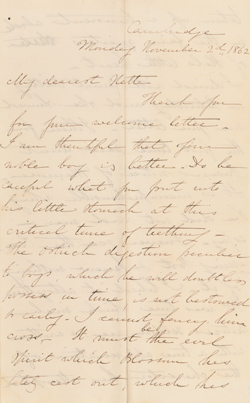 Cambridge
Monday November 2d, 1862
My dearest Nette
Thank you
for your welcome letter.
I am thankful that your
noble boy is better. Do be
careful what you put into
his little stomach at this
critical time of teething.
The ostrich digestion peculiar
to boys which he will doubtless
possess in time, is not bestowed
so early. I cannot fancy him
cross. It must be the evil
spirit which Blossom has
lately cast out, which has